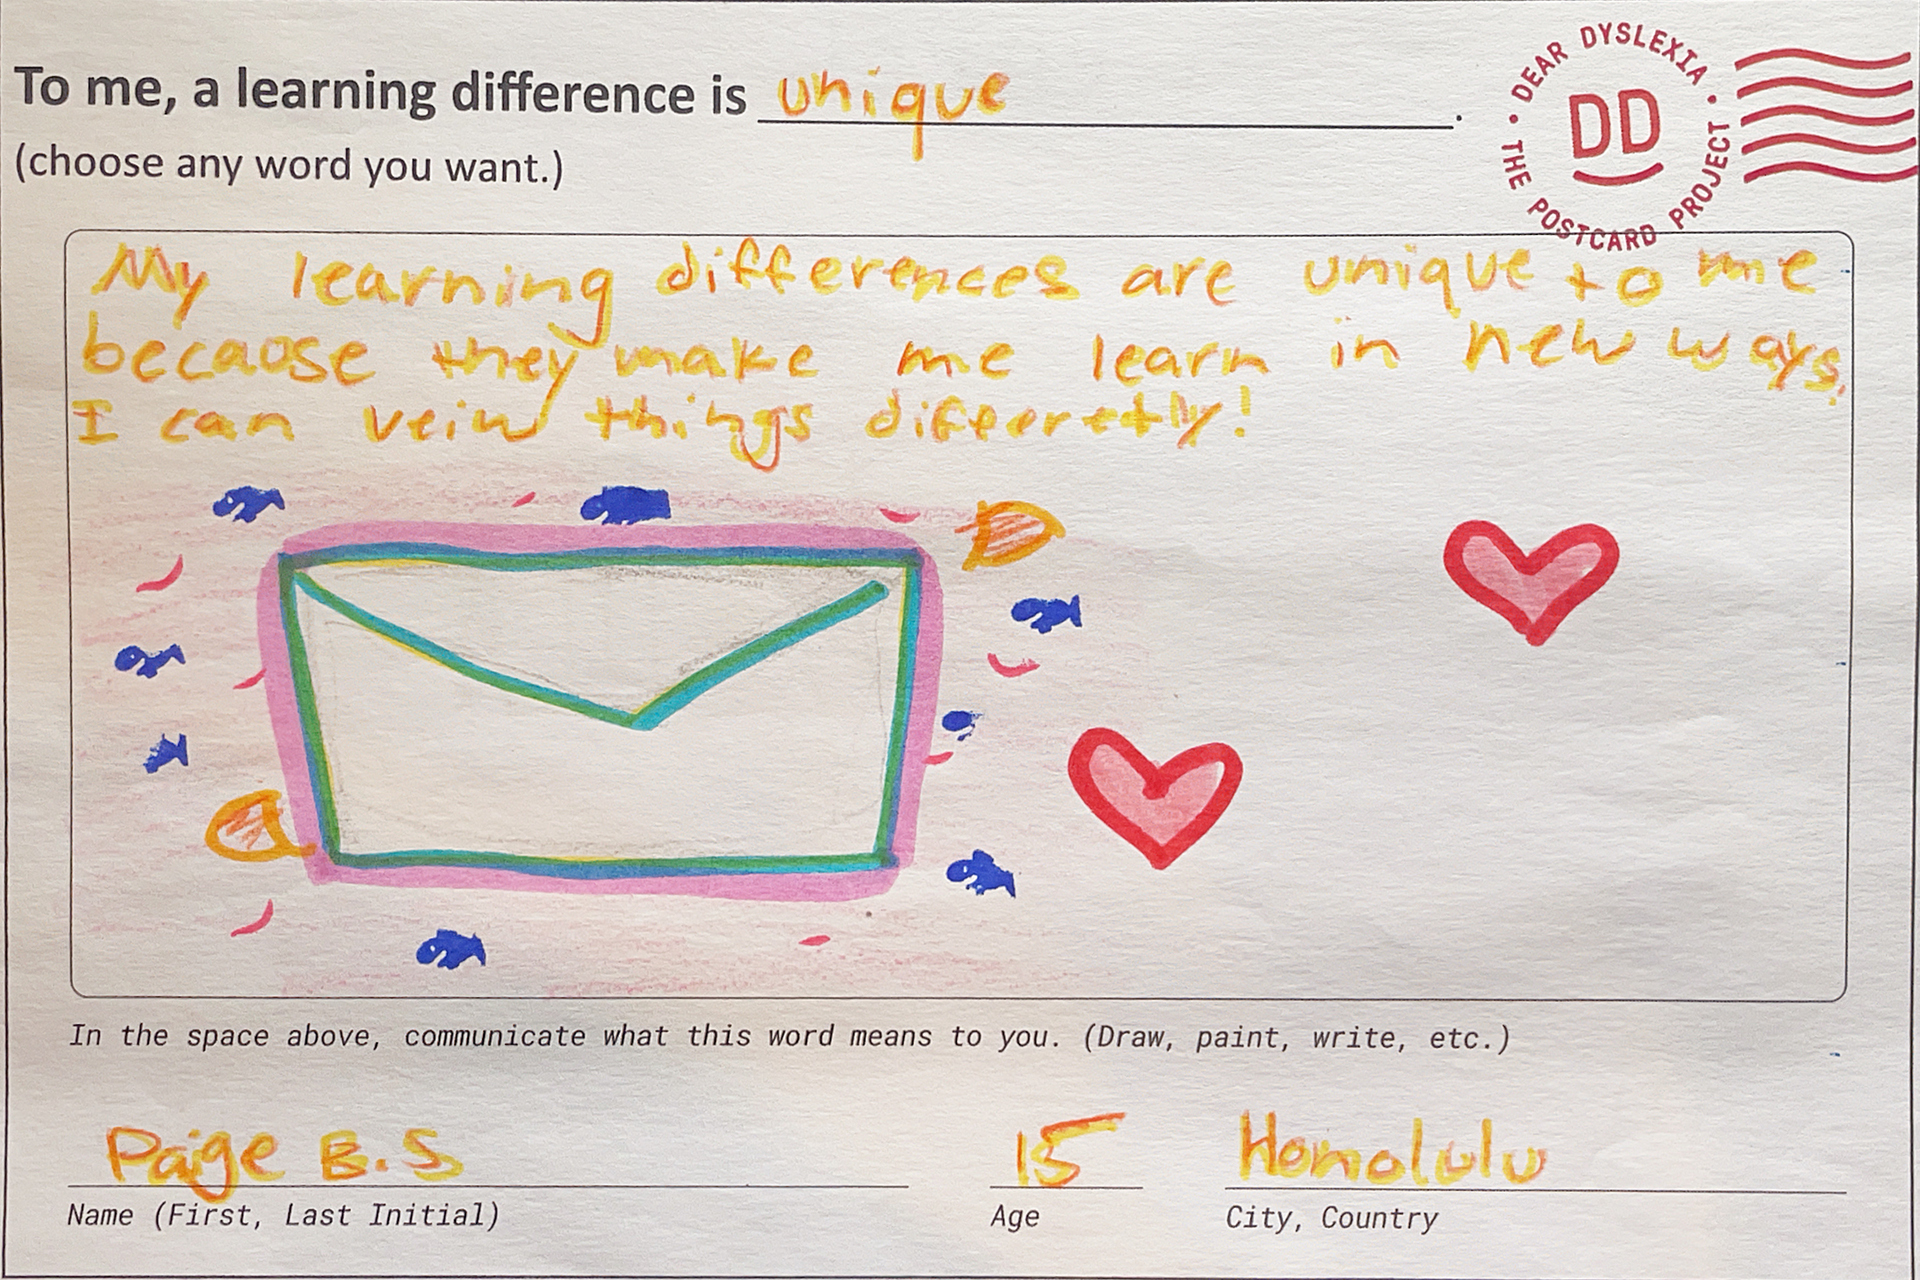 To me, a learning difference is unique.
(choose any word you want.)
DEAR DYSLEXIA • THE POSTCARD PROJECT •
DD
My learning differences are unique to me
because they make me learn in new ways.
I can veiw things differetly!
In the space above, communicate what this word means to you. (Draw, paint, write, etc.)
Paige B.S 15 Honolulu
Name (First, Last Initial) Age City, Country